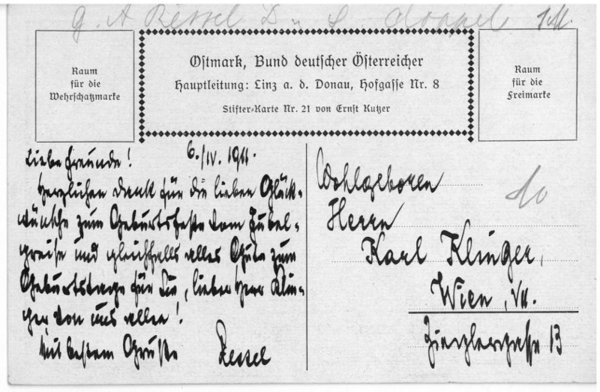 G. A. Ressel D. u. L. doppel 1M.
Raum
für die
Wehrschatzmarke
Ostmark, Bund deutscher Österreicher
Hauptleitung: Linz a. d. Donau, Hofgasse Nr. 8
Stifter-Karte Nr. 21 von Ernst Kutzer
Raum
für die
Freimarke
Liebe Freunde! 6./IV. 1911.
Herzlichen Dank für die lieben Glück-
wünsche zum Geburtsfeste vom Jubel-
greise und gleichfalls alles Gute zum
Geburtstage für Sie, lieber Herr Klin-
ger von uns allen!
Mit bestem Gruße Ressel
Wohlgeboren
Herrn
Karl Klinger,
Wien, VII.
Zieglergasse 13
10